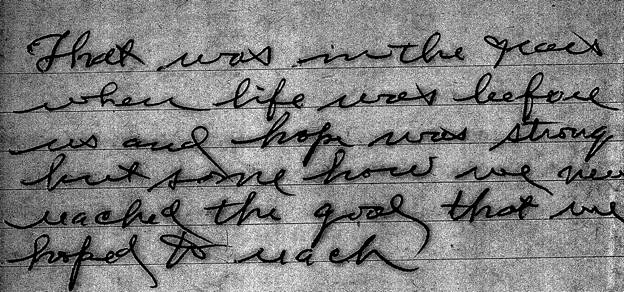 That was in the years
when life was before
us and hope was strong
but some how we
reached the goal that we
hoped to reach